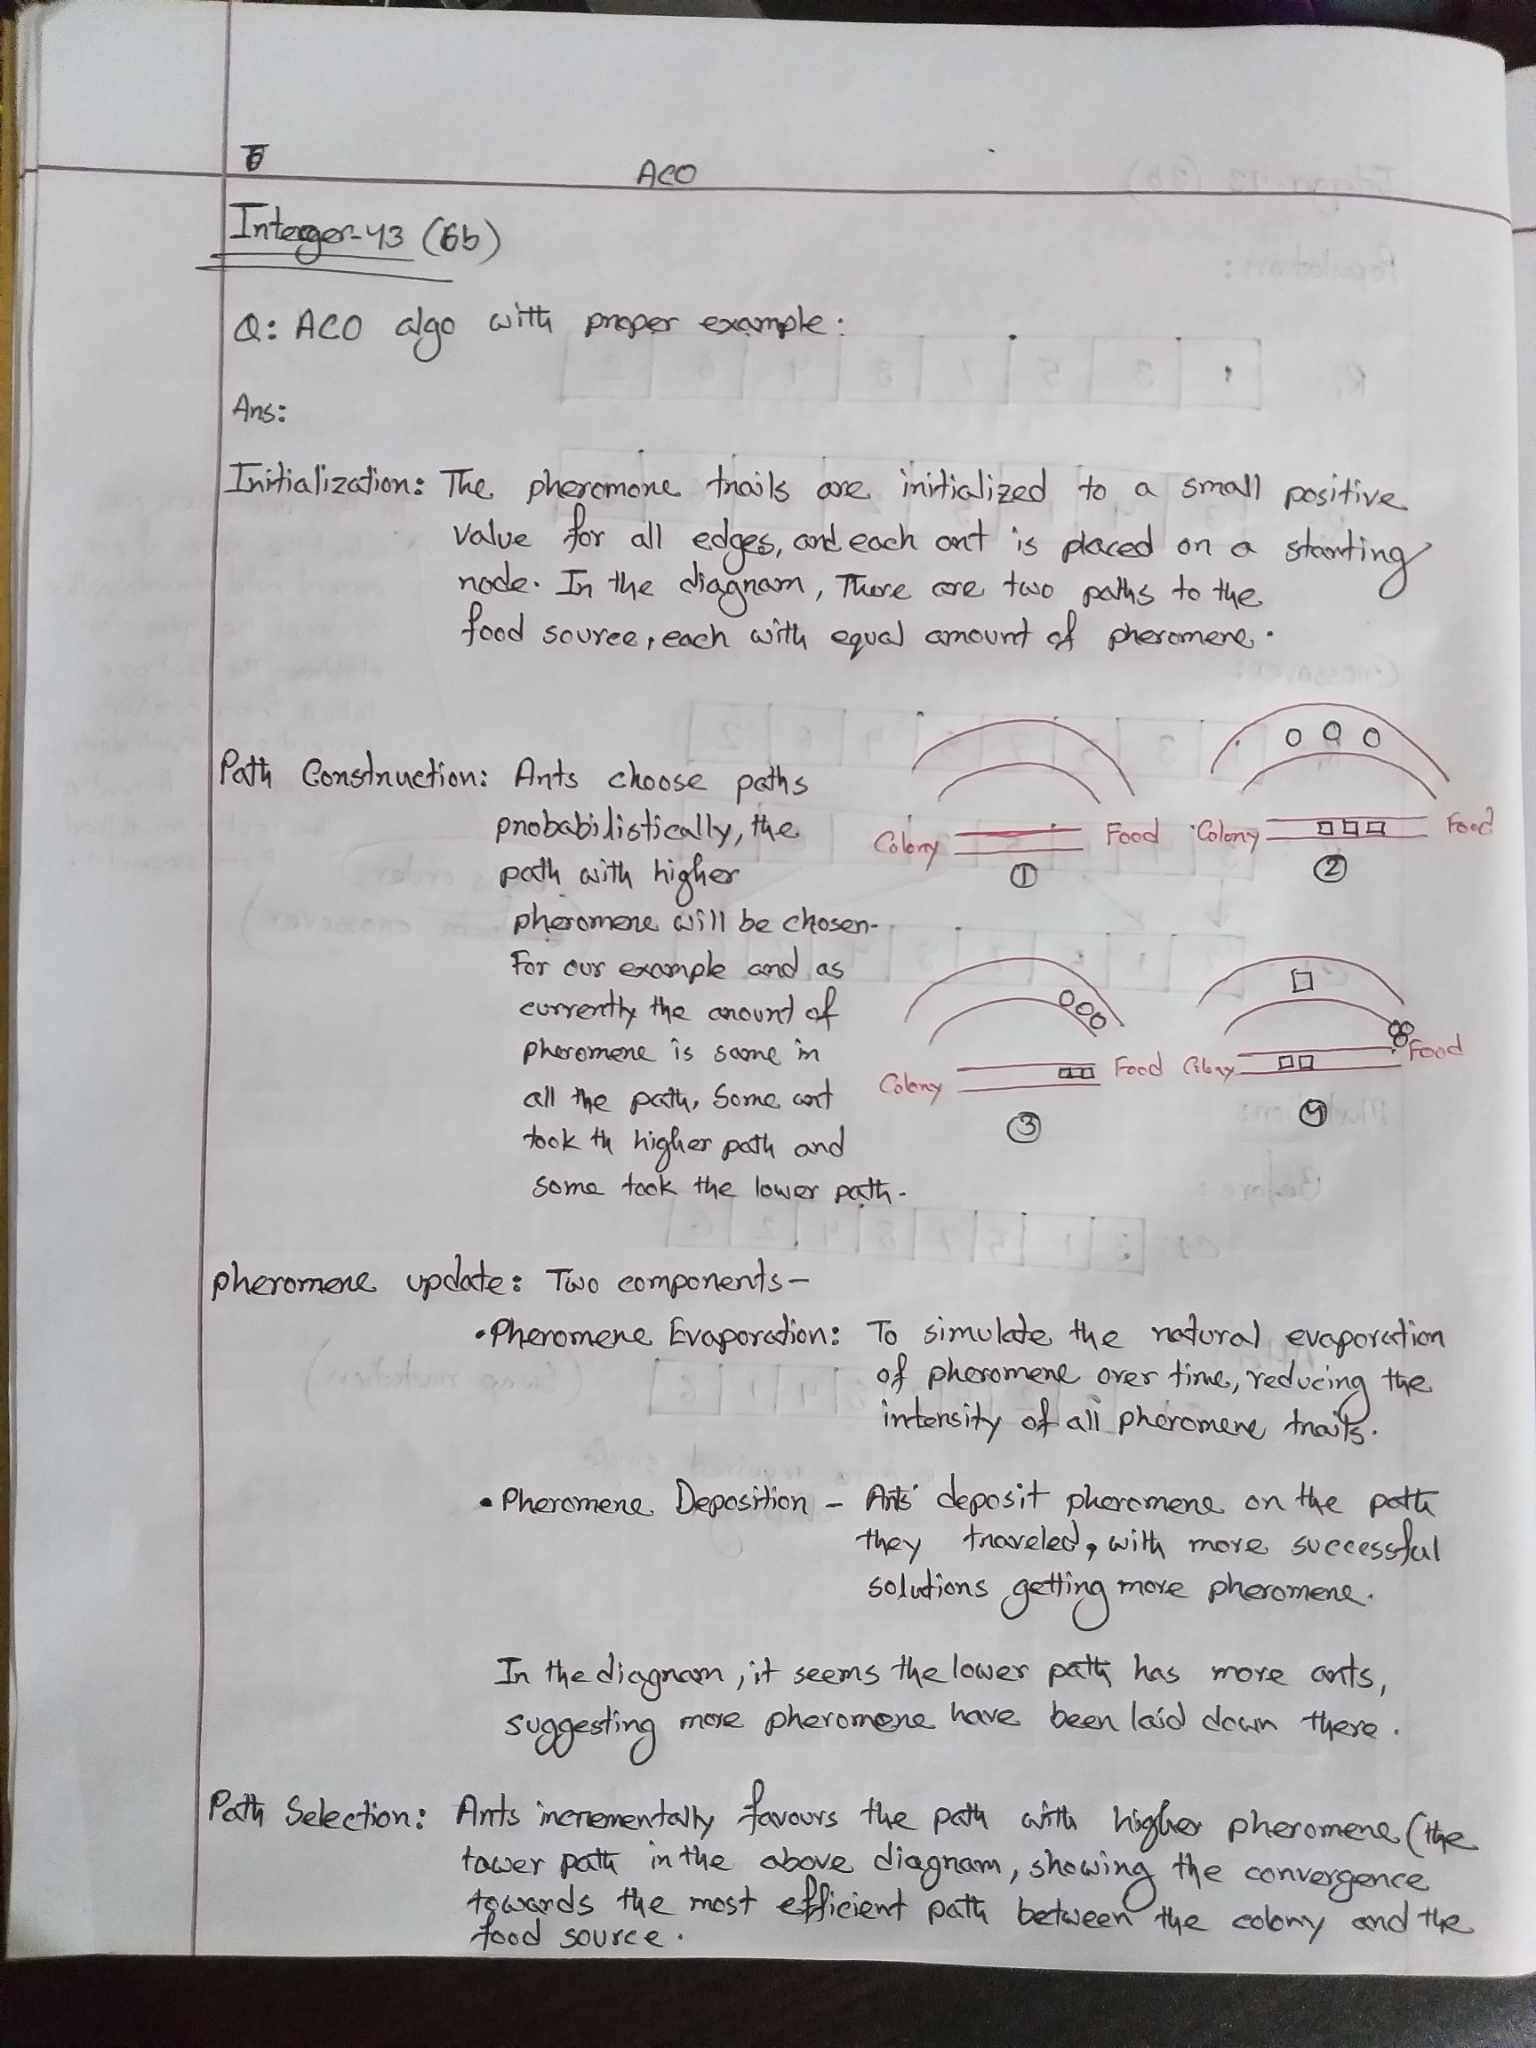 6
ACO
Interger-43 (6b)
Q: ACO algo with proper example:
Ans:
Initialization: The pheromone trails are initialized to a small positive
value for all edges, and each ant is placed on a starting
node. In the diagram, There are two paths to the
food source, each with equal amount of pheromene.
Path Construction: Ants choose paths
probabilistically, the
path with higher
pheromene will be chosen.
For our example and as
currently the amount of
pheromene is same in
all the path, Some ant
took th higher path and
some took the lower path.
Colony Food
①
Colony Food
②
Colony Food
③
Colony Food
④
pheromene update: Two components—
• Pheromene Evaporation: To simulate the natural evaporation
of pheromene over time, reducing the
intensity of all pheromene trails.
• Pheromene Deposition - Ants deposit pheromene on the path
they traveled, with more successful
solutions getting more pheromene.
In the diagram, it seems the lower path has more ants,
suggesting more pheromone have been laid down there.
Path Selection: Ants incrementally favours the path with higher pheromene (the
lower path in the above diagram, showing the convergence
towards the most efficient path between the colony and the
food source.